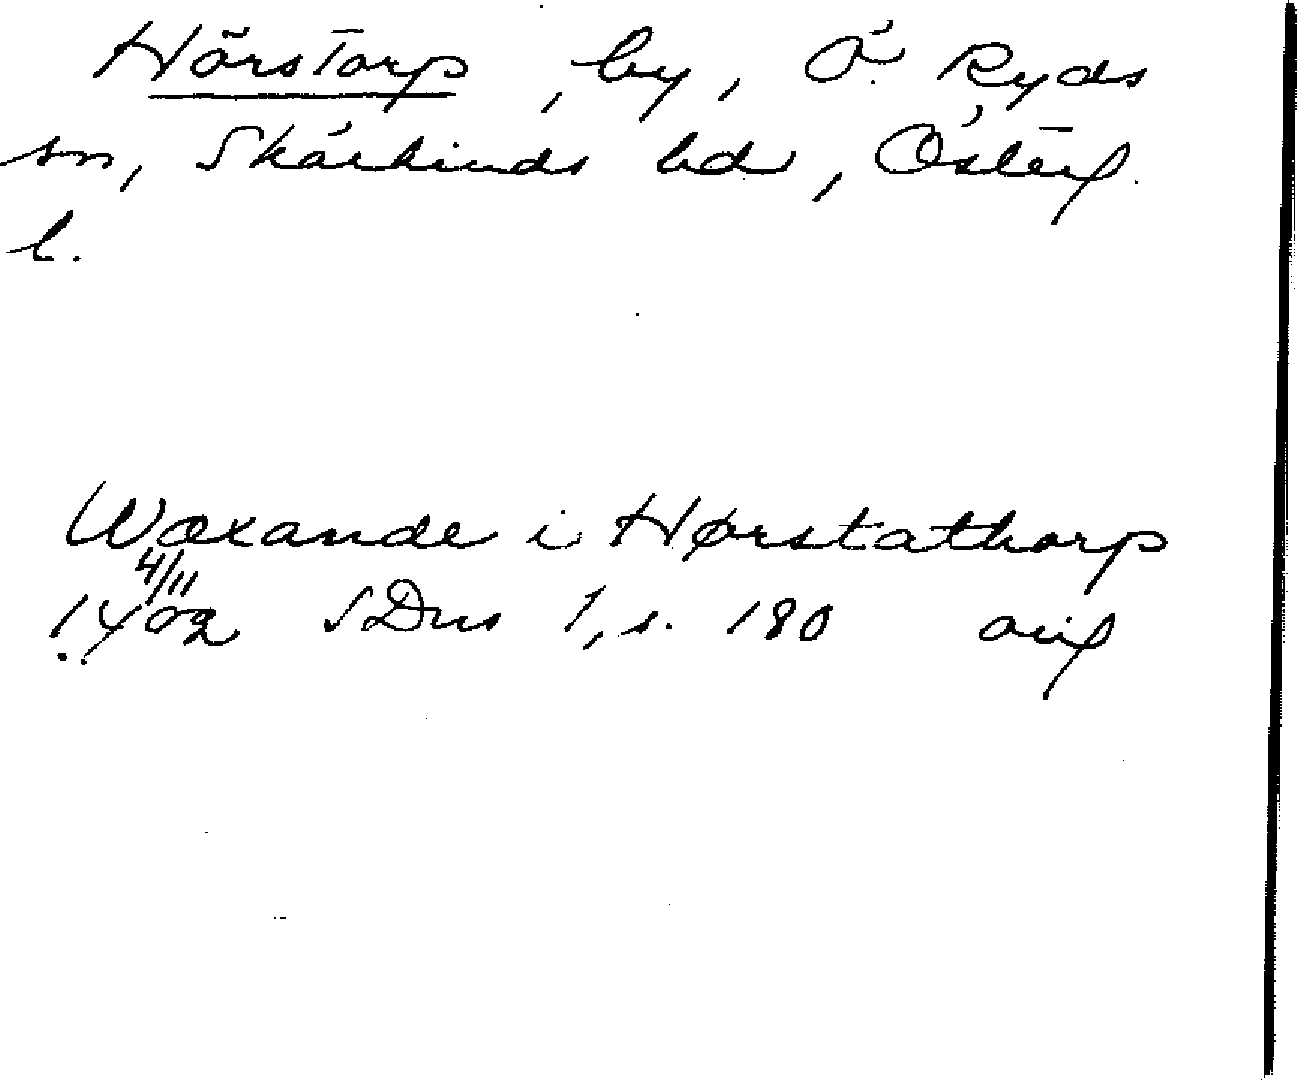 Hörstorp, by, Ö. Ryds
sn, Skärkinds hd, Österg.
l.
Wæxande i Hørstathorp
4/11
1402 SDns 1, s. 180 orig